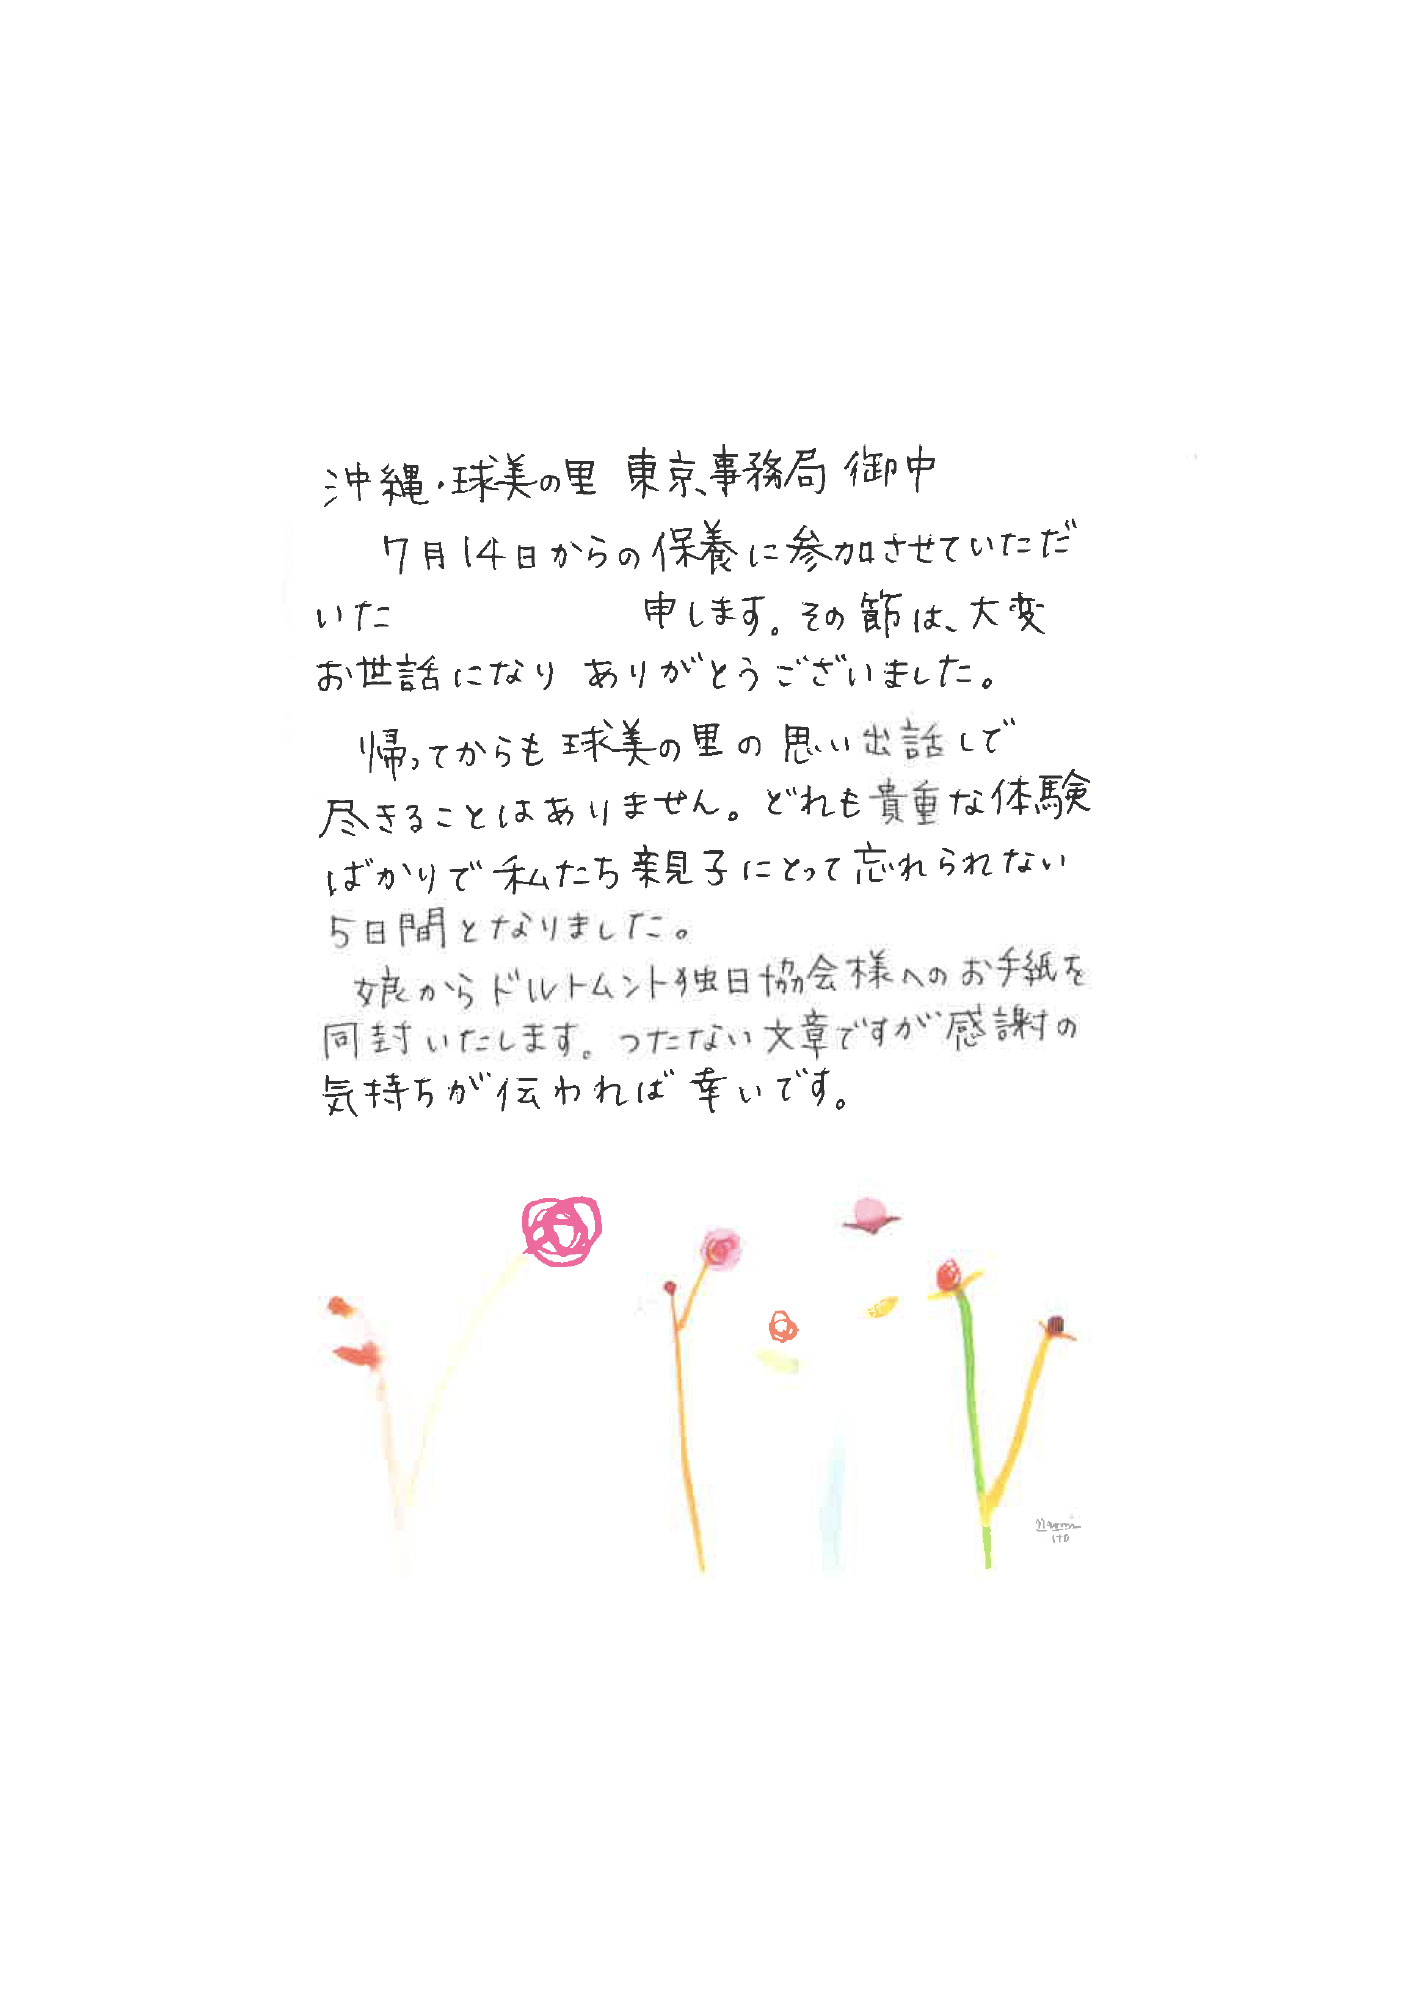 沖縄・球美の里 東京事務局 御中
7月14日からの保養に参加させていただ
いた 申します。その節は、大変
お世話になり ありがとうございました。
帰ってからも球美の里の思い出話しで
尽きることはありません。どれも貴重な体験
ばかりで私たち親子にとって忘れられない
5日間となりました。
娘からドルトムント独日協会様へのお手紙を
同封いたします。つたない文章ですが感謝の
気持ちが伝われば幸いです。
Naomi
ITO